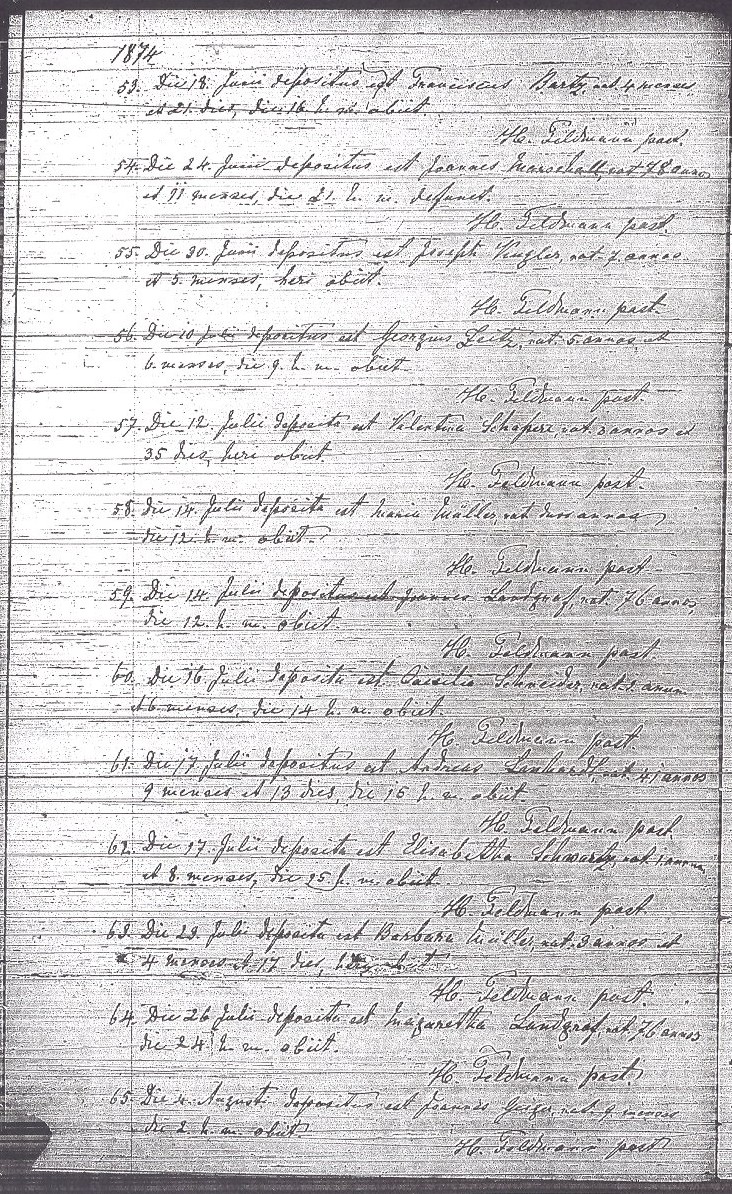 1874
53. Die 18. Junii depositus est Franciscus Bartz, nat. 4 menses
et 21. dies, die 16 h. m. obiit.
H. Feldmann past.
54. Die 24. Junii depositus est Joannes Marschall, nat 78 annos
et 11 menses, die 21. h. m. defunct.
H. Feldmann past.
55. Die 30. Junii depositus est Joseph nat. 7. annos
et 5. menses, heri obiit.
H. Feldmann past.
56. Die 10 Julii depositus est Georgius Zeitz, nat. 5 annos, et
6 menses, die 9. h. m. obiit.
H. Feldmann past.
57. Die 12. Julii deposita est Valentina nat. 3 annos et
35 dies, heri obiit.
H. Feldmann past.
58. Die 14. Julii deposita est Maria Müller, nat. duos annos,
die 12. h. m. obiit.
H. Feldmann past
59. Die 14. Julii depositus est Joannes Landgraf, nat. 76 annos,
die 12. h. m. obiit.
H. Feldmann past.
60. Die 16. Julii deposita est Caecilia Schneider, nat. 1. annum
et 6 menses, die 14 h. m. obiit.
H. Feldmann past.
61. Die 17 Julii depositus est Andreas nat. 41 annos
9 menses et 13 dies, die 15 h. m. obiit.
H. Feldmann past
62. Die 17. Julii deposita est Elisabetha Schwartz, nat. 1 annum
et 8. menses, die 15 h. m. obiit.
H. Feldmann past.
63. Die 23. Julii deposita est Barbara Müller, nat. 3 annos et
4 menses et 17 dies, obiit.
H. Feldmann past.
64. Die 26 Julii deposita est Margaretha Landgraf, nat. 76 annos
die 24 h. m. obiit.
H. Feldmann past.
65. Die 4. Augusti depositus est Joannes Geiger nat. 9 menses
die 2. h. m. obiit.
H. Feldmann past